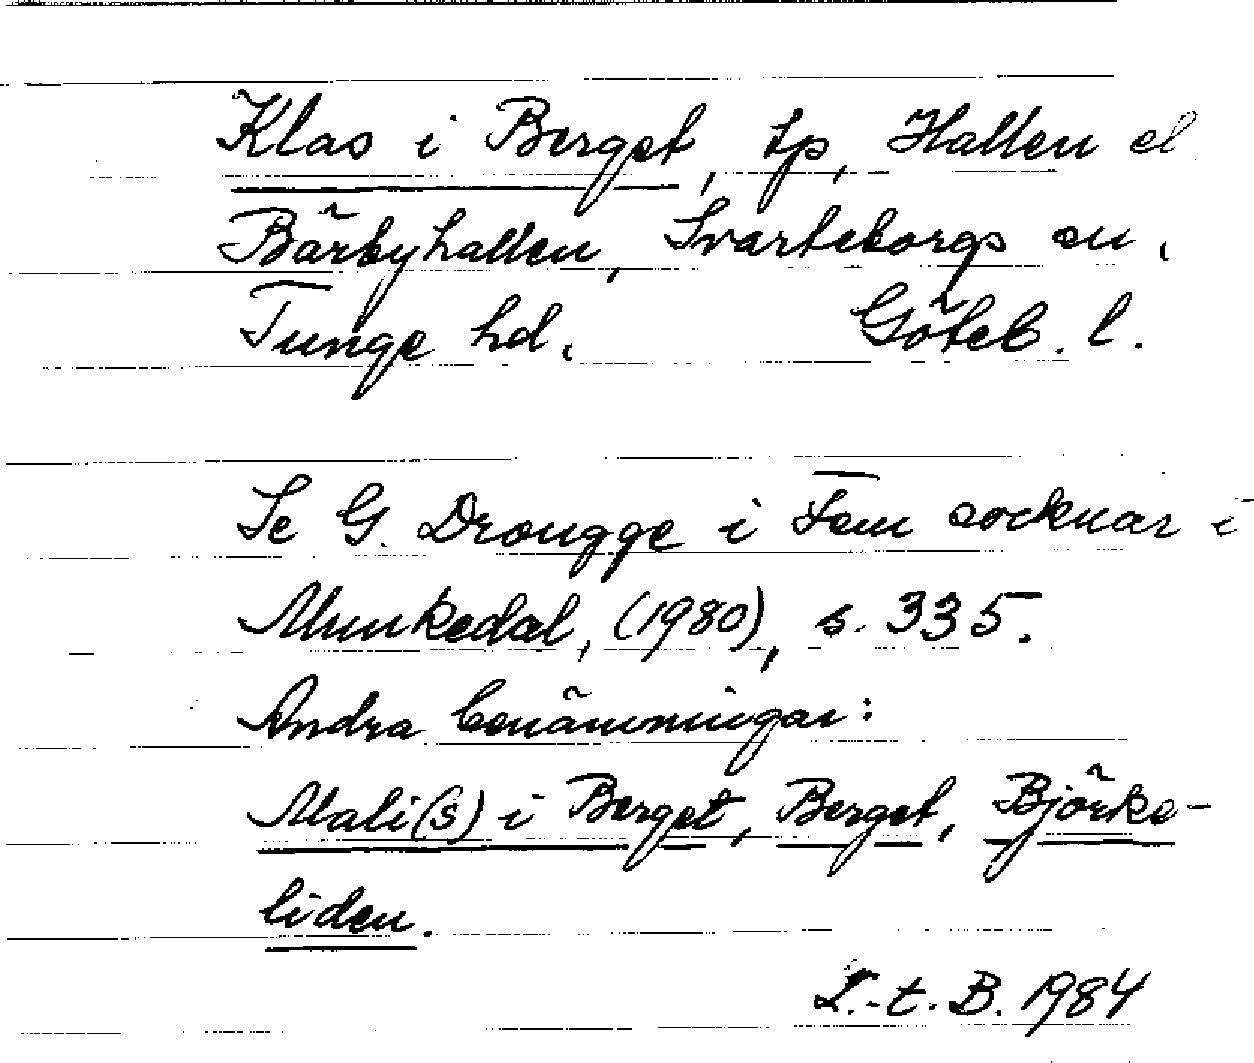 Klas i Berget, tp, Hallen el
Bärbyhallen, Svarteborgs sn,
Tunge hd, Göteb. l.
Se G. Drougge i Fem socknar i
Munkedal, (1980), s. 335.
Andra benämningar:
Mali(s) i Berget, Berget, Björke-
liden.
L.-t. B. 1984